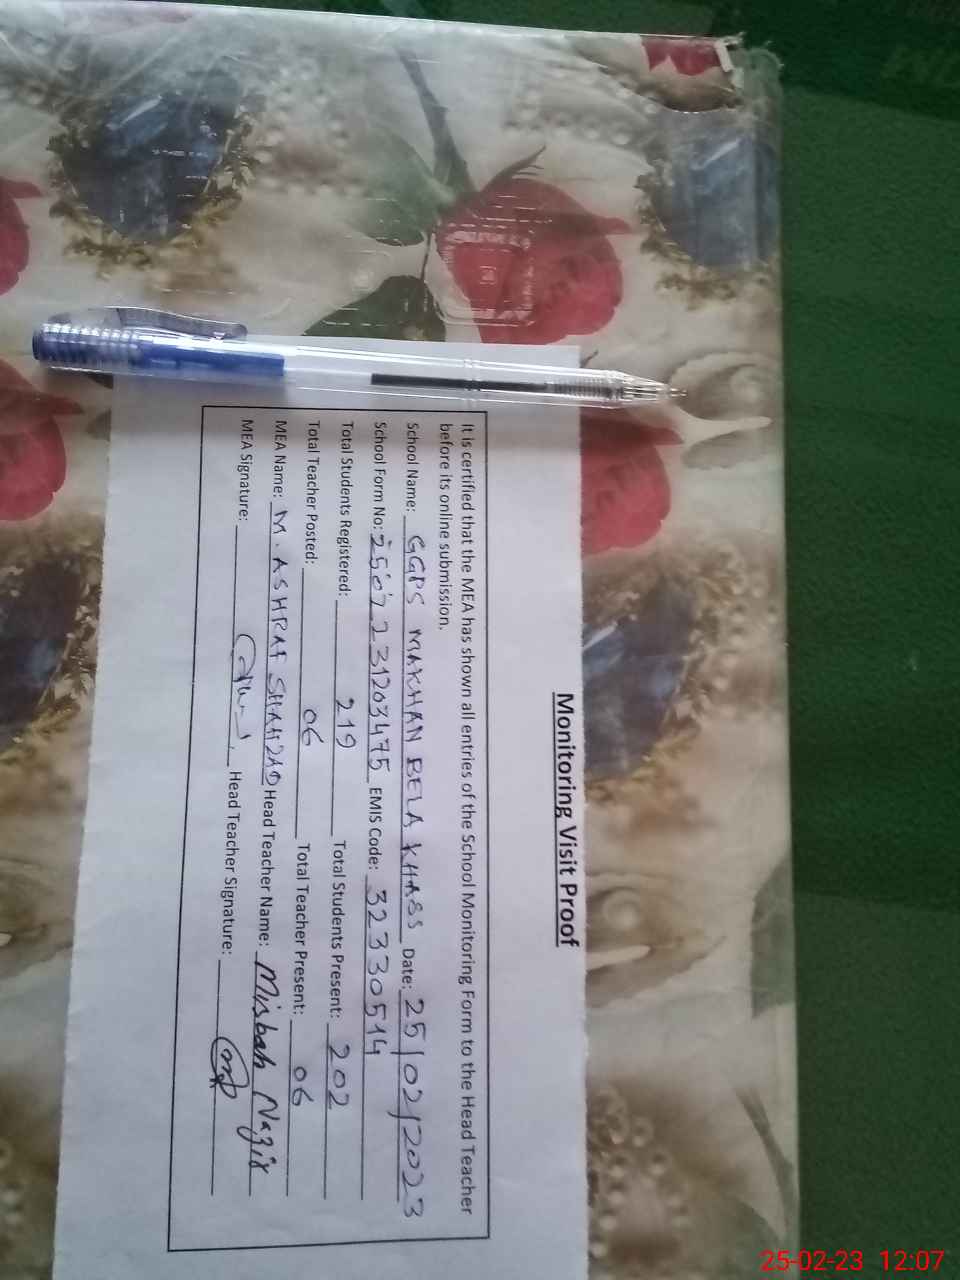 Monitoring Visit Proof
It is certified that the MEA has shown all entries of the School Monitoring Form to the Head Teacher
before its online submission.
School Name: GGPS MAKHAN BELA KHASS Date: 25/02/2023
School Form No: 2507231203475 EMIS Code: 32330514
Total Students Registered: 219 Total Students Present: 202
Total Teacher Posted: 06 Total Teacher Present: 06
MEA Name: M. ASHRAF SHAHZAD Head Teacher Name: Misbah Nazir
MEA Signature: Head Teacher Signature:
25-02-23 12:07